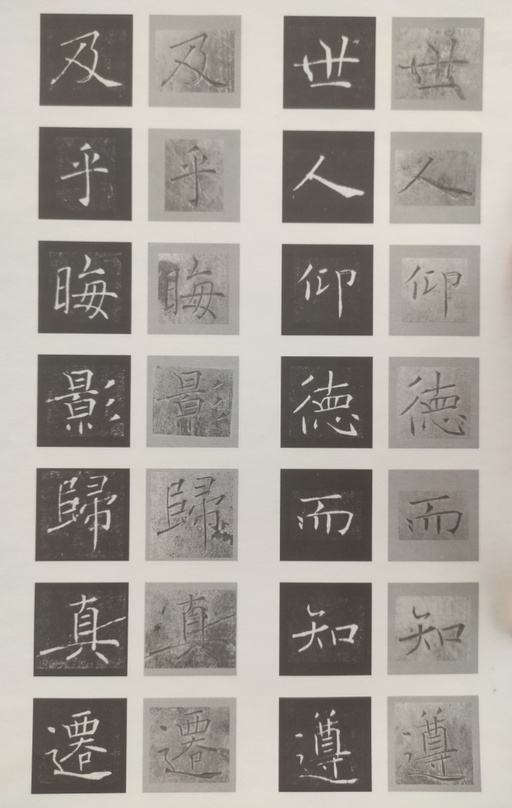 世人仰德而知遵
世人仰德而知遵
及乎晦影歸真遷
及乎晦影歸真遷